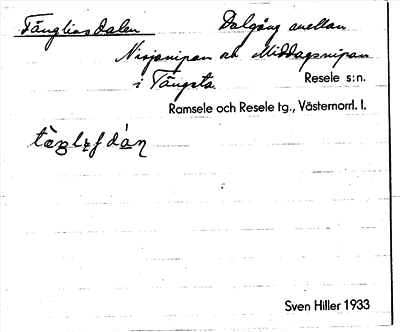 Tängliasdalen Dalgång mellan
Nisjanipan och Middagsnipan
i Tängsta. Resele s:n.
Ramsele och Resele tg., Västernorrl. l.
Sven Hiller 1933